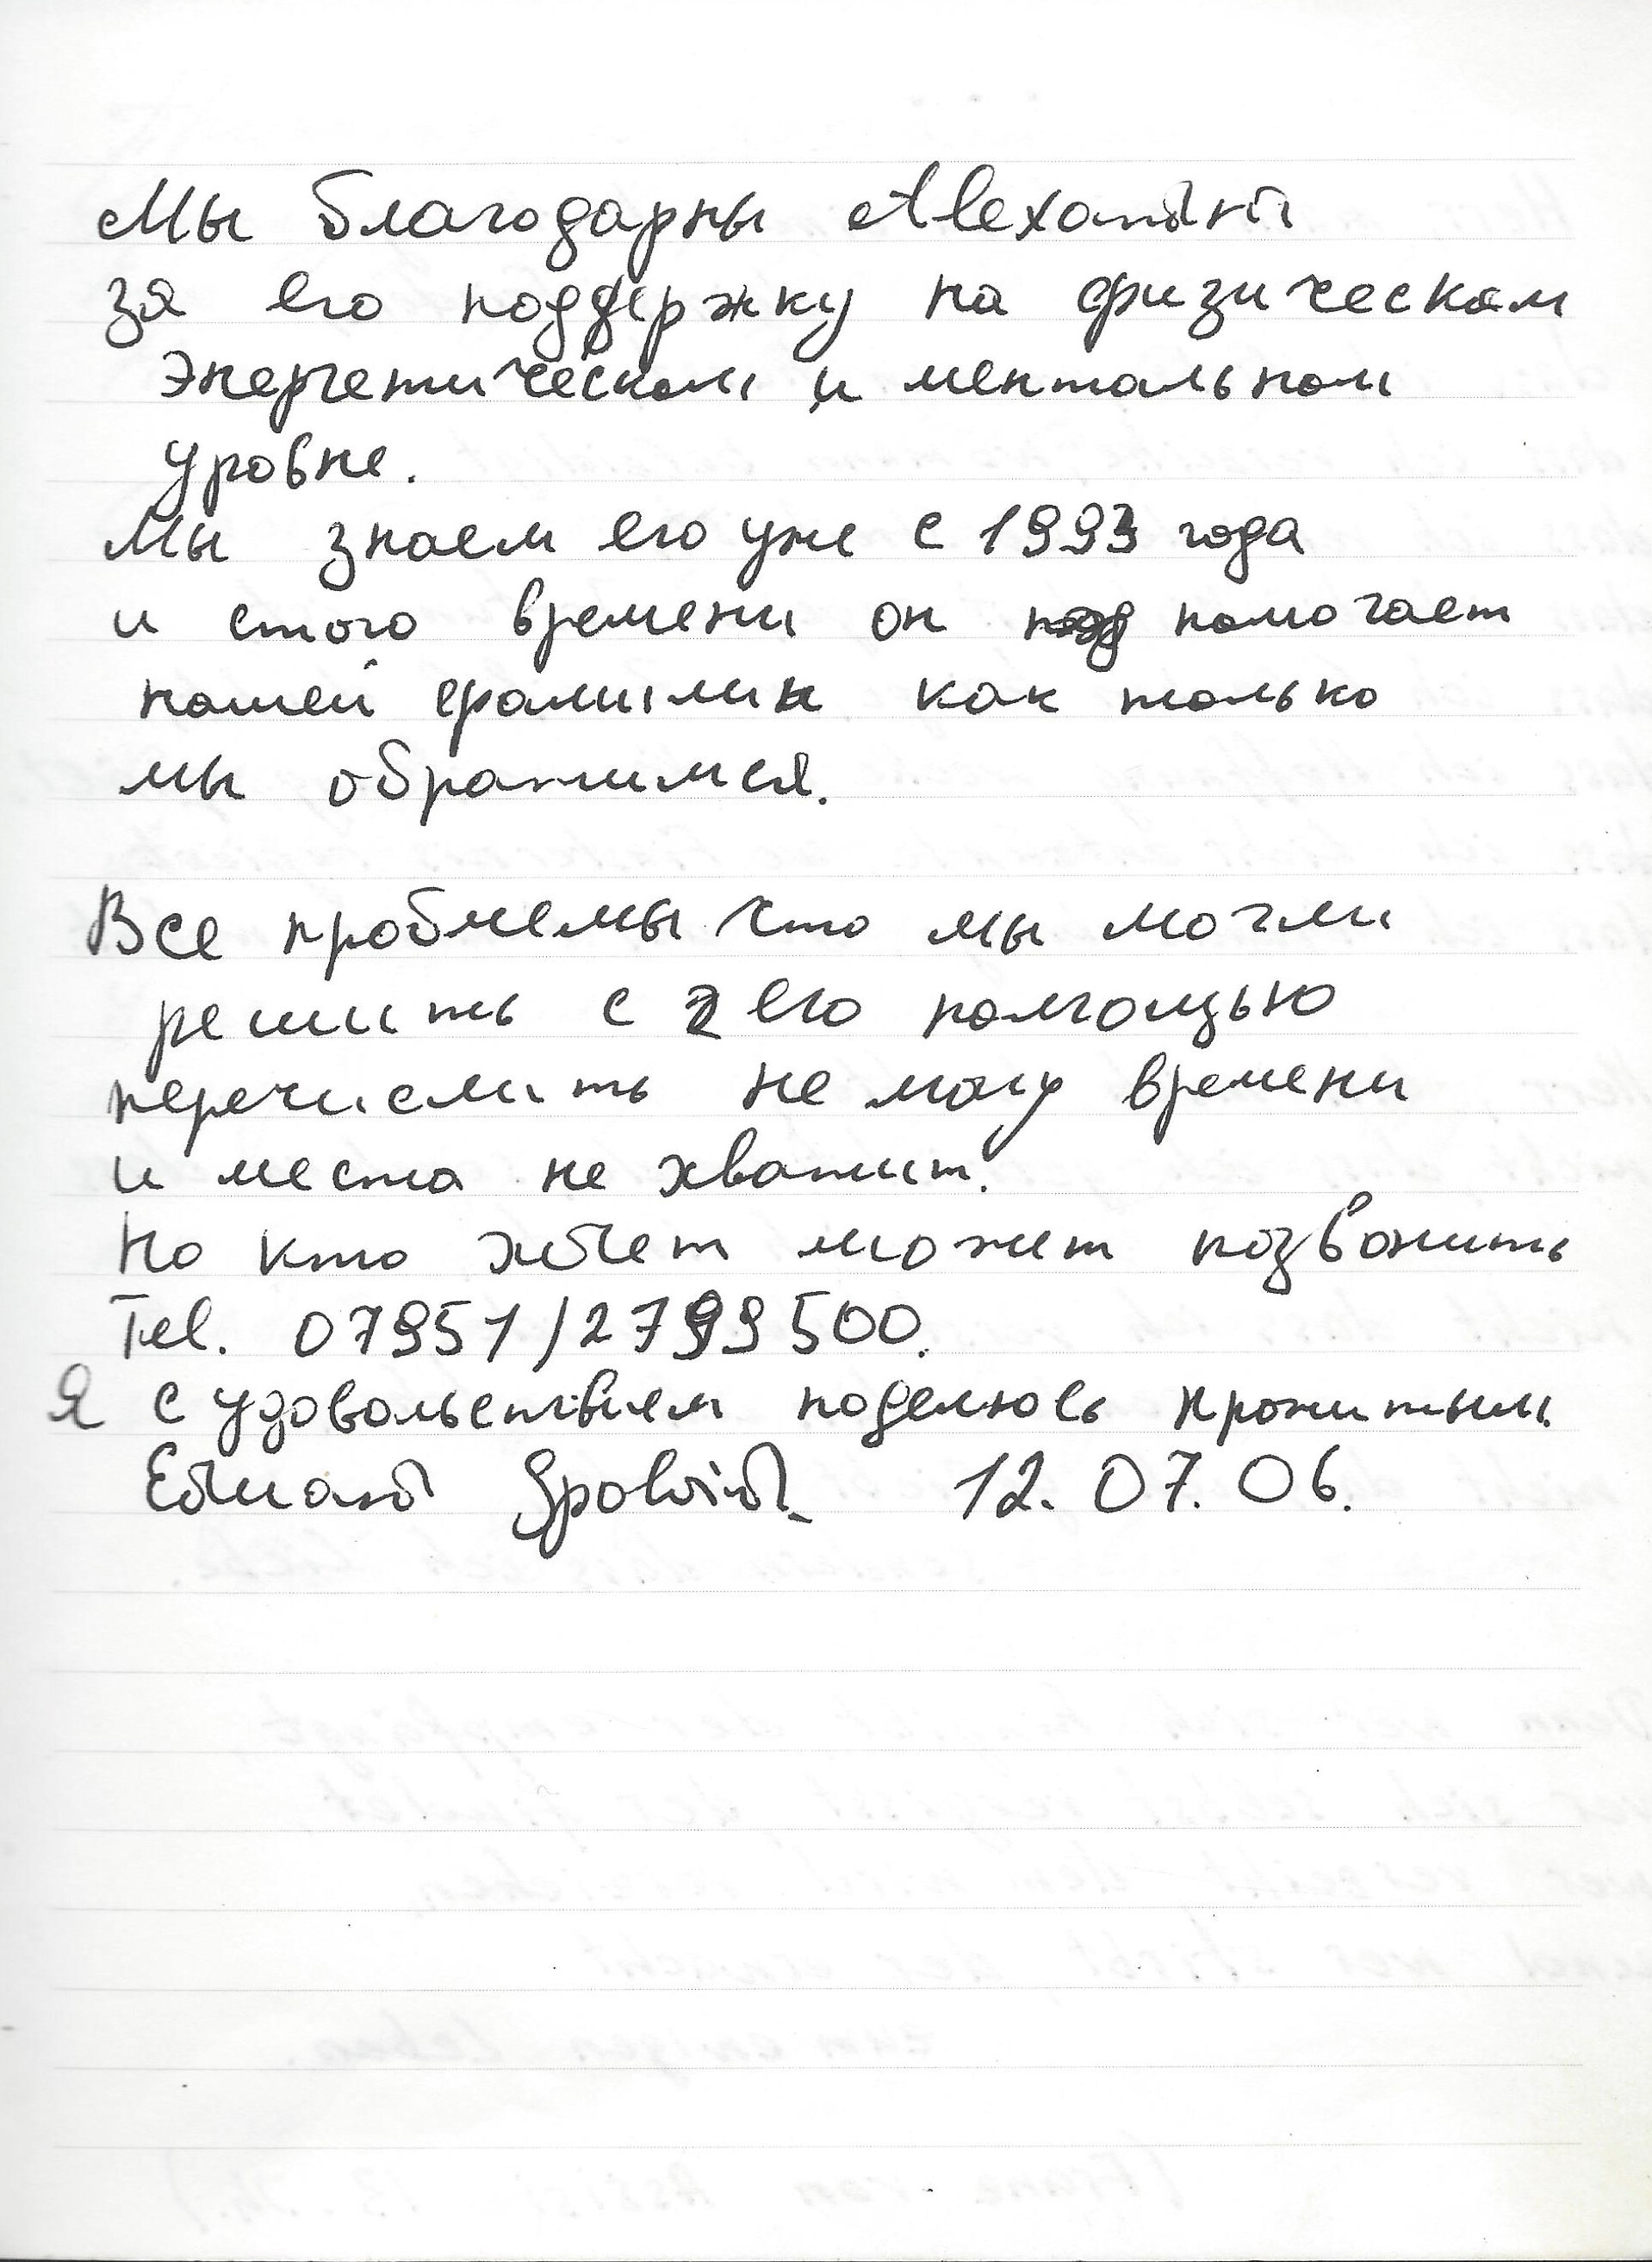 Мы благодарны Alexandru
за его поддержку на физическом
энергетическом и ментальном
уровне.
Мы знаем его уже с 1993 года
и стого времени он помогает
нашей фамилии как только
мы обратимся.
Все проблемы что мы могли
решить с его помощью
перечислить не могу времени
и места не хватит.
Но кто хочет может позвонить
Tel. 07951/2799500.
Я с удовольствием поделюсь прожитым
Eduard 12.07.06.